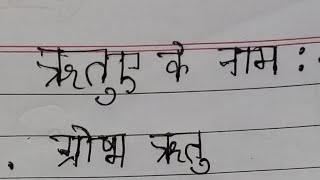 ऋतुए के नाम :
. ग्रीष्म ऋतु